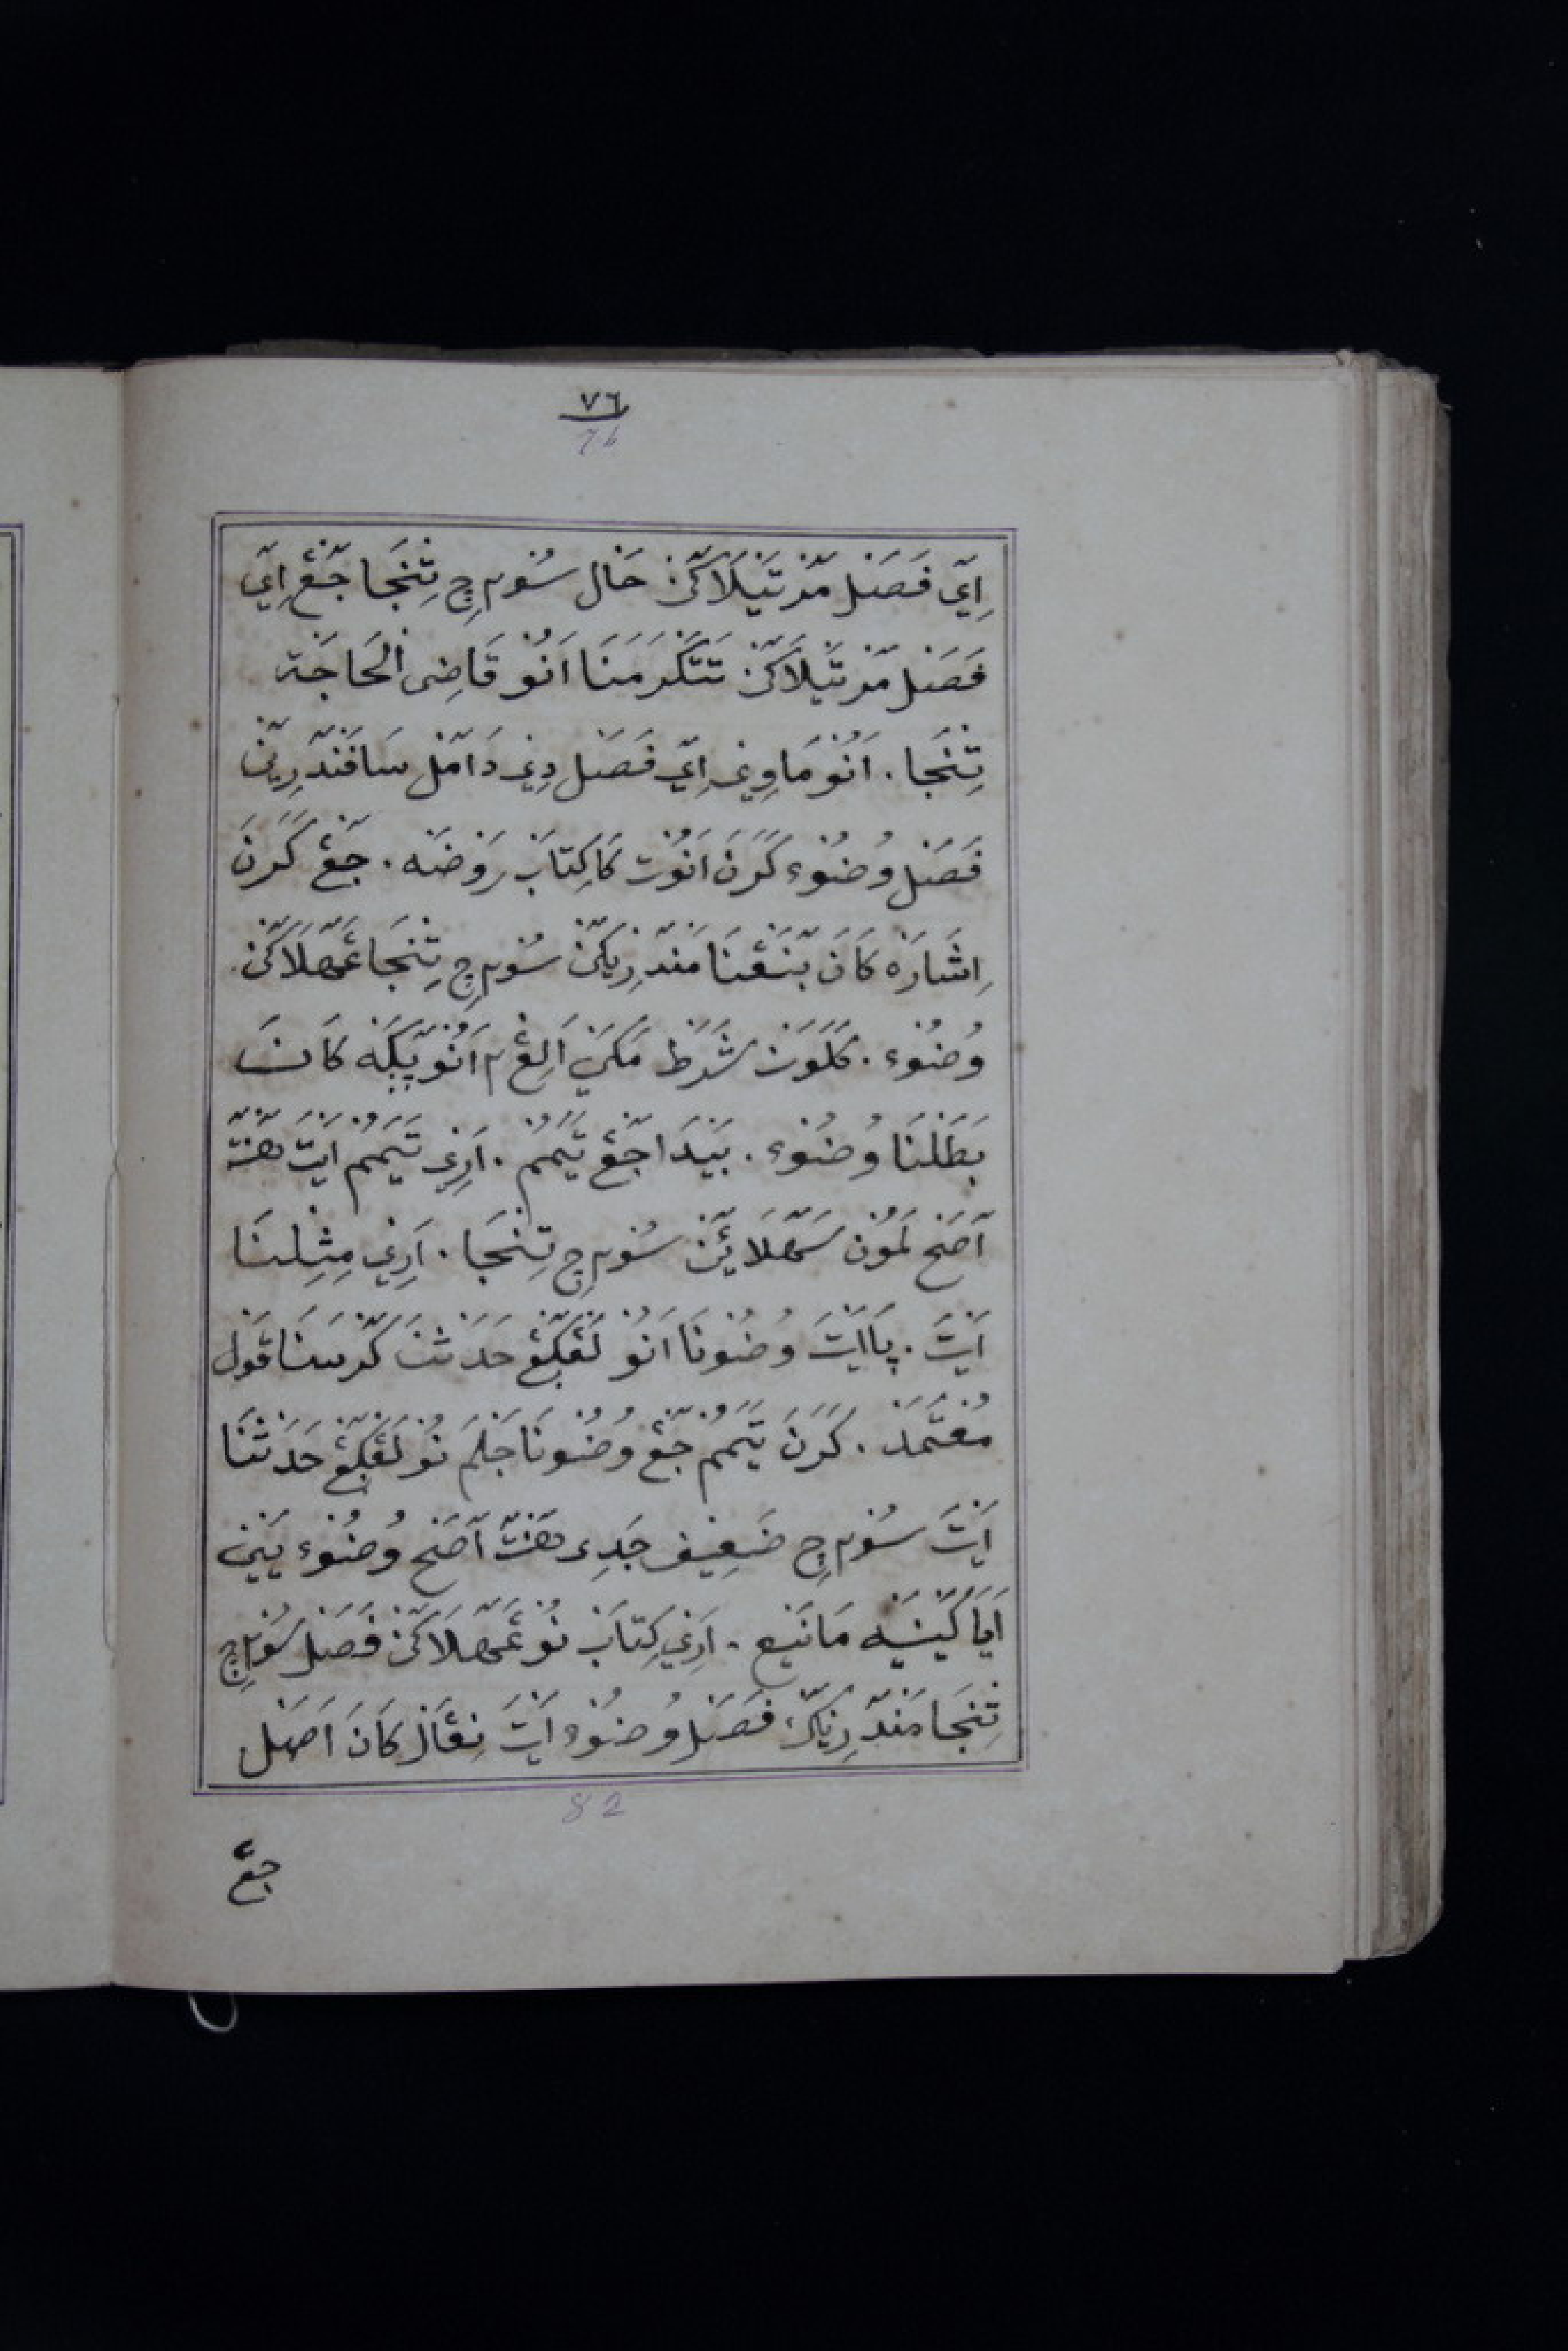 ٧٦
76
اِيّ فَصَل مّرْتَيْلَاكّنْ حَال سُوْمِ جِ تِنْجَا جّڠْ اِيّ
فَصَل مّرْتَيْلَاكّنْ تَتَكْرَمَنَا اَنُوْ قَاضِى الْحَاجَة
تِنْجَا. اَنُوْمَاوِيْ اِيّ فَصَل دِيْ دَامّلْ سَافَنْدّرِيّنْ
فَصَل وُضُوْء كَرَنَ اَنُوْت كَا كِتَابْ رَوْضَه. جّڠْ كَرَنَ
اِشَارَه كَانَ بّنَڠْنَا مَنْدّرِيْكّنْ سُوْمِ جِ تِنْجَا عّمْهَلَاكّنْ
وُضُوْء. كَلَوَنْ شَرَط مَكَيْ اَلِڠْ ۲ اَنُوْ پَڮَه كَانَ
بَطَلْنَا وُضُوْء. بَيْدَا جّڠْ تَيَمُّمْ. اَرِيْ تَيَمُّمْ اَيْتَ هّنْتّ
اّصَح لَمُوْن سَمّهَلَايّنْ سُوْمِ جِ تِنْجَا. اَرِيْ مِثِلْنَا
اَيْتَ. پَا اَيْتَ وُضُوْنَا اَنُوْ لَڠْڮّڠْ حَدَثْنَ كّرْسَنَا قَوْل
مُعْتَمَدْ. كَرَنَ تَيَمُّمْ جّڠْ وُضُوْنَا جَلْمَ نُوْ لَڠْڮّڠْ حَدَثْنَا
اَيْتَ سُوْمِ جِ ضَعِيْف جَدِء هّنْتّ اّصَح وُضُوْء يَيْن
اَيَا كّيْنَيْه مَانِيْع. اَرِيْ كِتَابْ نُوْ عّمْهَلَاكّنْ فَصَل سُوْمِ جِ
تِنْجَا مَنْدّرِيْكّنْ فَصَل وُضُوْء اَيْتَ نِڠَالْ كَانَ اَصَل
82
جّڠْ